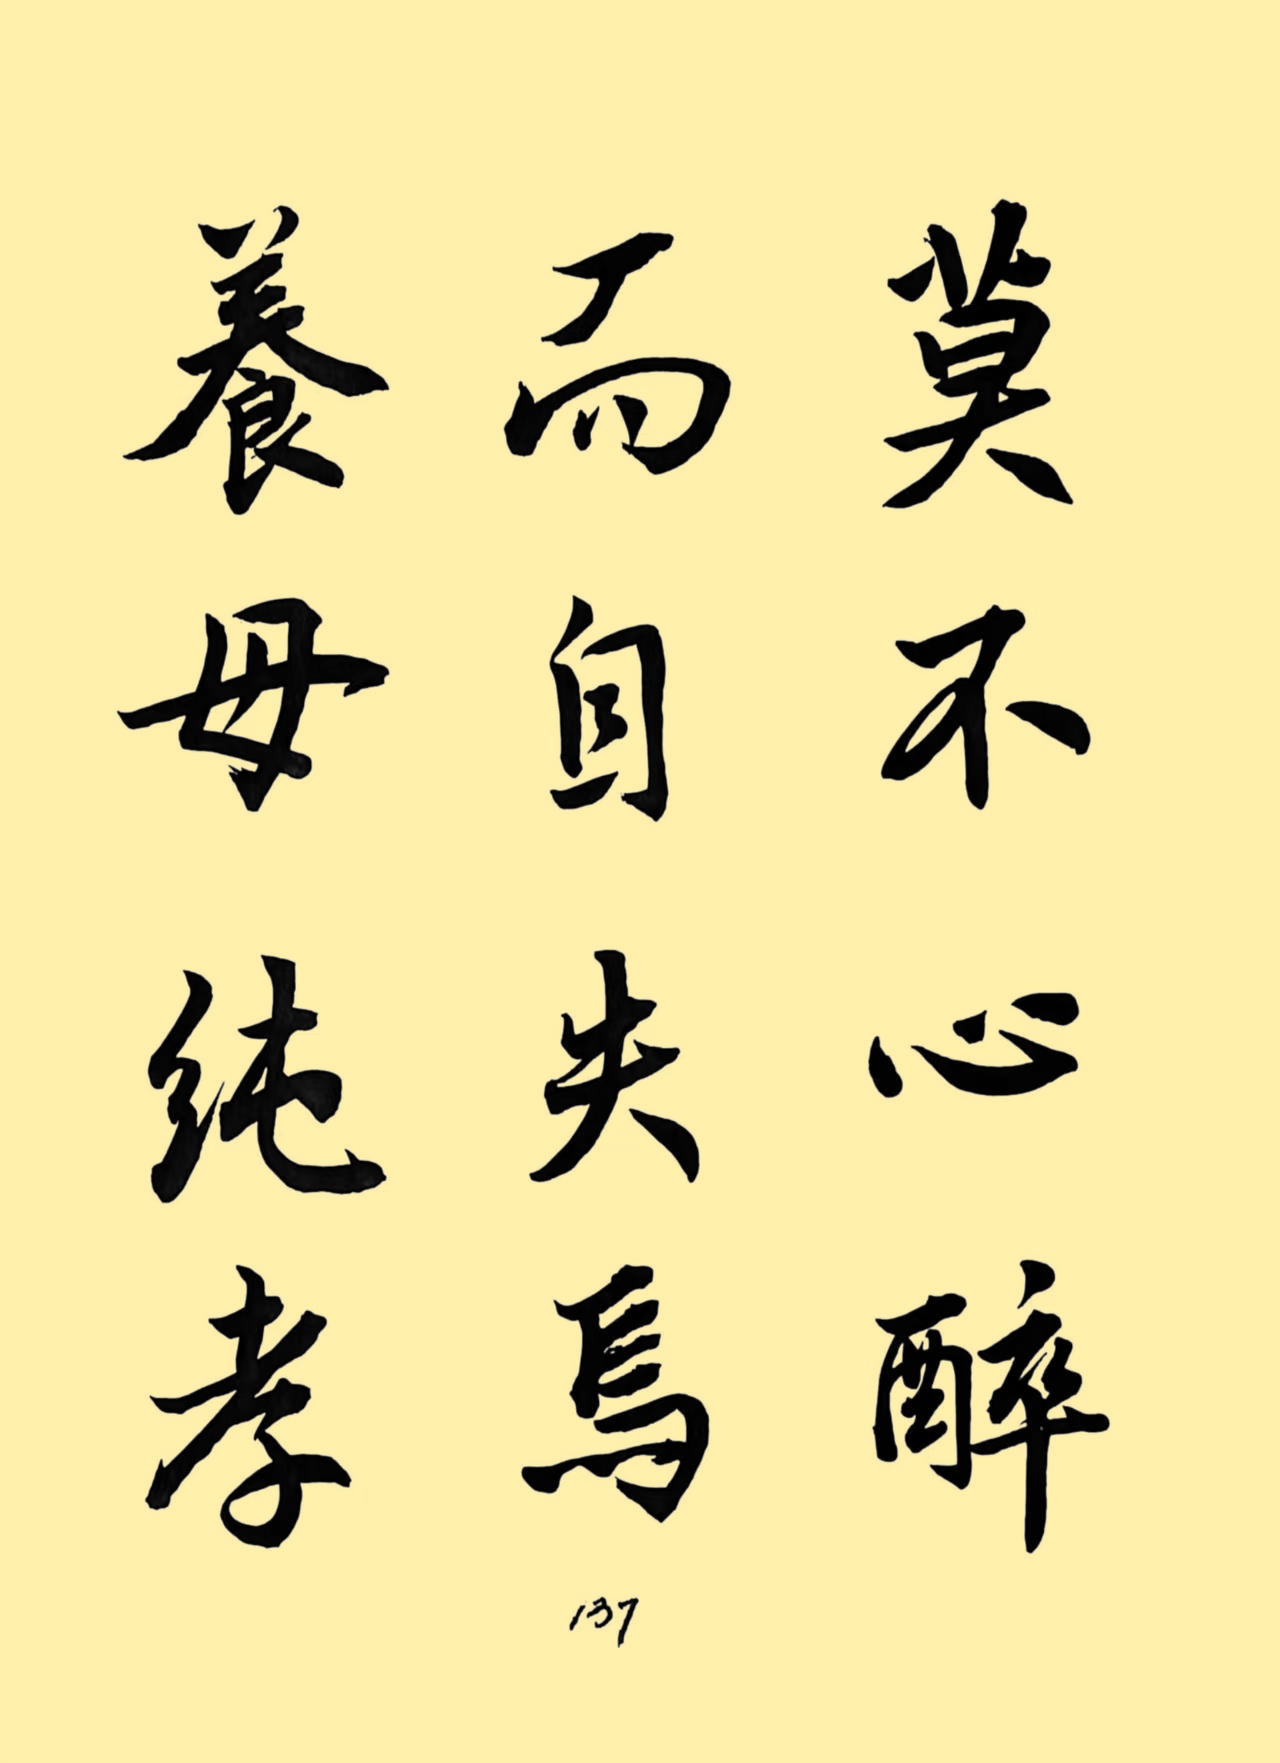 莫不心醉
而自失焉
養母純孝
137